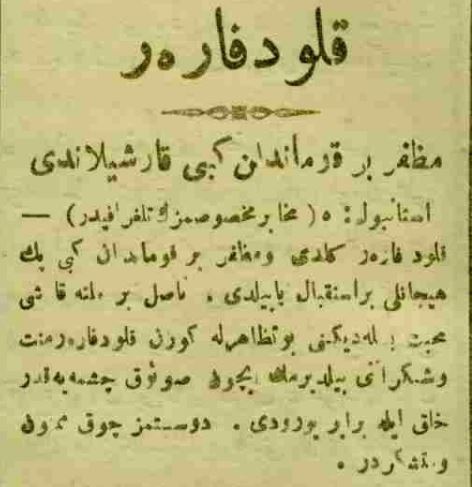 قلود فارەر
مظفر بر قوماندان كبی قارشیلاندی
استانبول: ٥ ( مخابر مخصوصمزك تلغرافیدر ) —
قلود فارەر كلدی ومظفر بر قوماندان كبی پك
هیجانلی بر استقبال یاپیلدی . ناصل بر ملته قارشی
محبت بسله‌دیكنی بو تظاهرله كورن قلود فارەر منت
وشكرانی بیلدیرمك ایچون صوئوق چشمه‌یه قدر
خلق ایله برابر یورودی . دوستمز چوق ممنون
ومتشكر در .